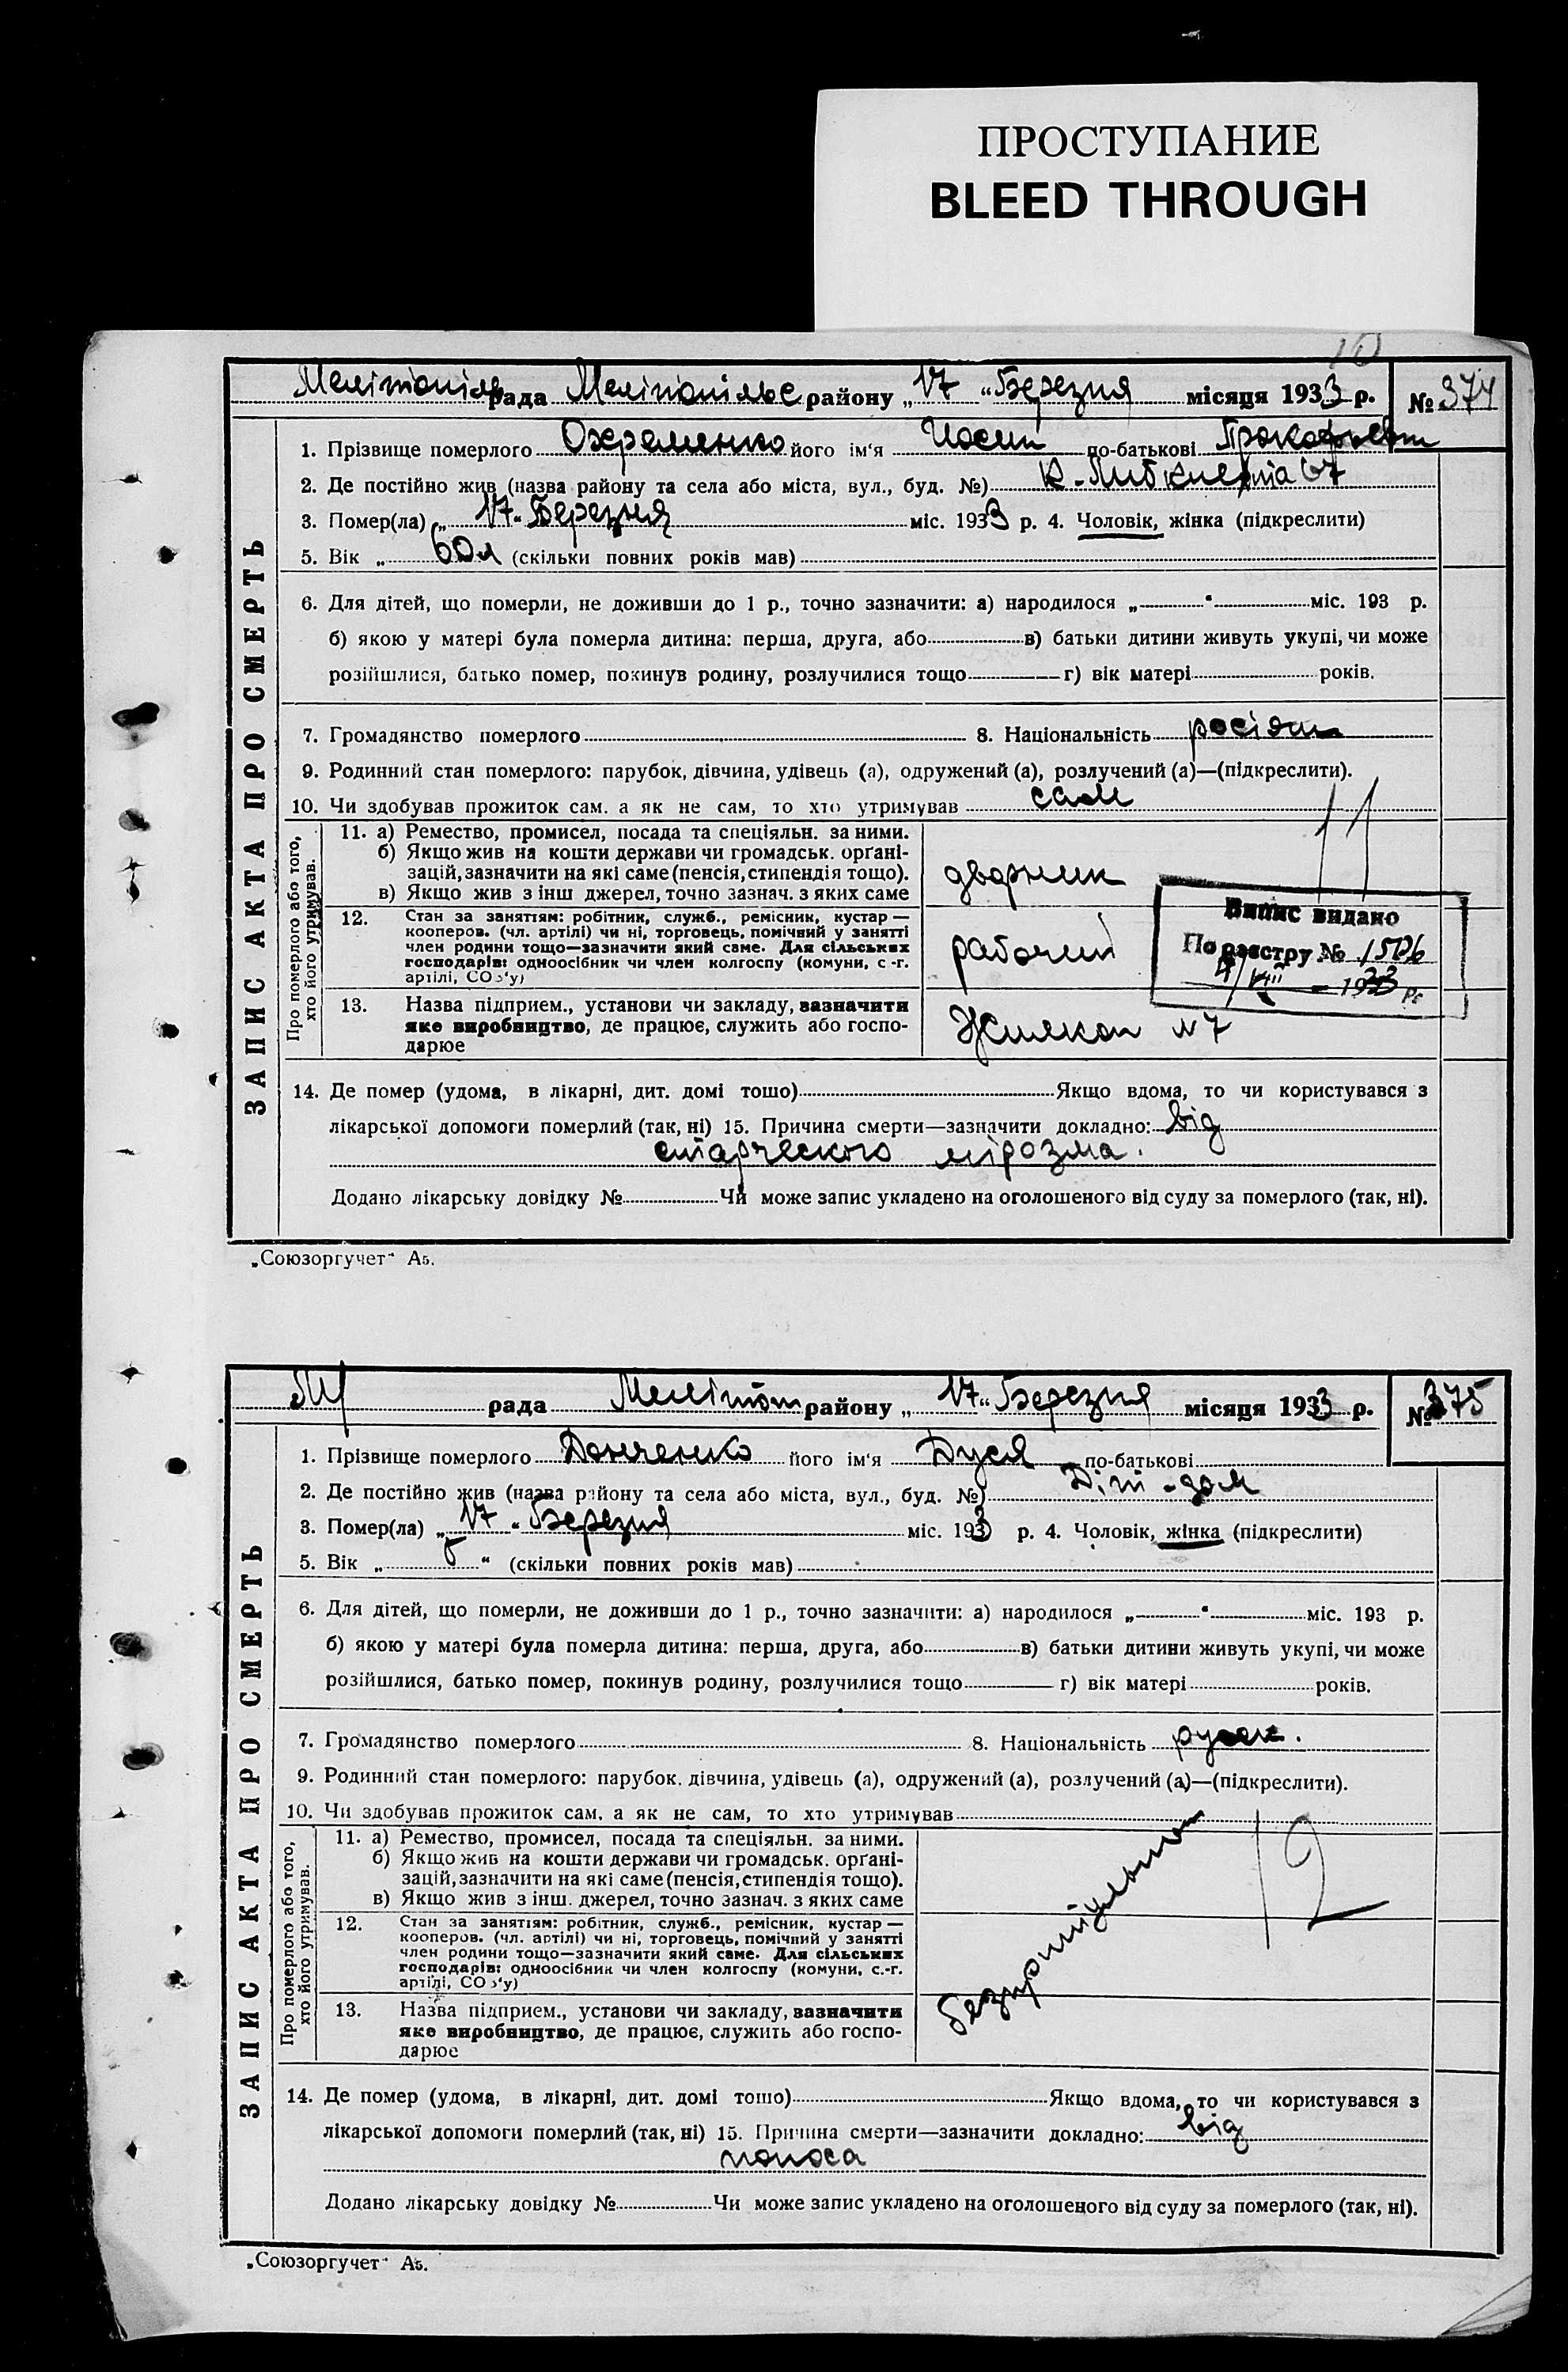 ПРОСТУПАНИЕ
BLEED THROUGH
10
Мелітопільс рада Мелітопільс району „17“ Березня місяця 1933 р. № 374
1. Прізвище померлого Охременко його ім'я Иосип по-батькові Прокофьев
2. Де постійно жив (назва району та села або міста, вул., буд. №) К-Либкнехта 67
3. Помер(ла) „17“ Березня міс. 1933 р. 4. Чоловік, жінка (підкреслити)
5. Вік „ 60 л (скільки повних років мав)
6. Для дітей, що померли, не доживши до 1 р., точно зазначити: а) народилося „ “ міс. 193 р.
б) якою у матері була померла дитина: перша, друга, або в) батьки дитини живуть укупі, чи може
розійшлися, батько помер, покинув родину, розлучилися тощо г) вік матері років.
7. Громадянство померлого 8. Національність росіян
9. Родинний стан померлого: парубок, дівчина, удівець (а), одружений (а), розлучений (а)—(підкреслити).
10. Чи здобував прожиток сам. а як не сам, то хто утримував сам
ЗАПИС АКТА ПРО СМЕРТЬ
Про померлого або того,
хто його утримував.
11. а) Ремество, промисел, посада та спеціяльн. за ними.
б) Якщо жив на кошти держави чи громадськ. орґані-
зацій, зазначити на які саме (пенсія, стипендія тощо).
в) Якщо жив з інш джерел, точно зазнач. з яких саме
дворник
11
12. Стан за заняттям: робітник, служб., ремісник, кустар —
кооперов. (чл. артілі) чи ні, торговець, помічний у занятті
член родини тощо—зазначити який саме. Для сільських
господарів: одноосібник чи член колгоспу (комуни, с-г.
артілі, СОЗ'у)
рабочий
Випис видано
По реєстру № 1506
4/VII — 1933 р.
13. Назва підприєм., установи чи закладу, зазначити
яке виробництво, де працює, служить або госпо-
дарює
Жилкоп № 7
14. Де помер (удома, в лікарні, дит. домі тошо) Якщо вдома, то чи користувався з
лікарської допомоги померлий (так, ні) 15. Причина смерти—зазначити докладно: від
старческого мірозма.
Додано лікарську довідку № Чи може запис укладено на оголошеного від суду за померлого (так, ні).
„Союзоргучет“ А5.
М/ рада Мелітоп району „17“ Березня місяця 1933 р. № 375
1. Прізвище померлого Донченко його ім'я Дуся по-батькові
2. Де постійно жив (назва району та села або міста, вул., буд. №) Діт-дом
3. Помер(ла) „17“ Березня міс. 1933 р. 4. Чоловік, жінка (підкреслити)
5. Вік „ “ (скільки повних років мав)
6. Для дітей, що померли, не доживши до 1 р., точно зазначити: а) народилося „ “ міс. 193 р.
б) якою у матері була померла дитина: перша, друга, або в) батьки дитини живуть укупі, чи може
розійшлися, батько помер, покинув родину, розлучилися тощо г) вік матері років.
7. Громадянство померлого 8. Національність русск.
9. Родинний стан померлого: парубок. дівчина, удівець (а), одружений (а), розлучений (а)—(підкреслити).
10. Чи здобував прожиток сам. а як не сам, то хто утримував
ЗАПИС АКТА ПРО СМЕРТЬ
Про померлого або того,
хто його утримував.
11. а) Ремество, промисел, посада та спеціяльн. за ними.
б) Якщо жив на кошти держави чи громадськ. орґані-
зацій, зазначити на які саме (пенсія, стипендія тощо).
в) Якщо жив з інш. джерел, точно зазнач. з яких саме
12
12. Стан за заняттям: робітник, служб., ремісник, кустар —
кооперов. (чл. артілі) чи ні, торговець, помічний у занятті
член родини тощо—зазначити який саме. Для сільських
господарів: одноосібник чи член колгоспу (комуни, с.-г.
артілі, СОЗ'у)
13. Назва підприєм., установи чи закладу, зазначити
яке виробництво, де працює, служить або госпо-
дарює
14. Де помер (удома, в лікарні, дит. домі тошо) Якщо вдома, то чи користувався з
лікарської допомоги померлий (так, ні) 15. Причина смерти—зазначити докладно: від
поноса
Додано лікарську довідку № Чи може запис укладено на оголошеного від суду за померлого (так, ні).
„Союзоргучет“ А5.